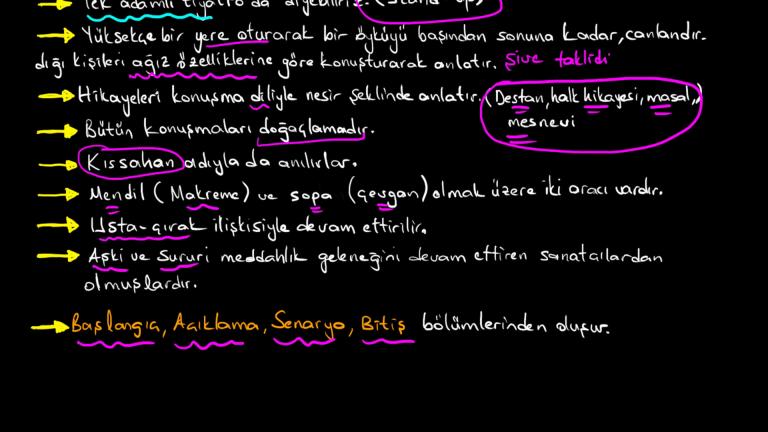 Tek adamlı tiyatro da diyebiliriz. (Stand up)
Yüksekçe bir yere oturarak bir öyküyü başından sonuna kadar, canlandır.
dığı kişileri ağız özelliklerine göre konuşturarak anlatır. Şive taklidi
Hikayeleri konuşma diliyle nesir şeklinde anlatır. (Destan, halk hikayesi, masal,)
mesnevi
Bütün konuşmaları doğaçlamadır.
Kıssahan adıyla da anılırlar.
Mendil (Makreme) ve sopa (çevgan) olmak üzere iki aracı vardır.
Usta-çırak ilişkisiyle devam ettirilir.
Aşki ve Sururi meddahlık geleneğini devam ettiren sanatçılardan
olmuşlardır.
Başlangıç, Açıklama, Senaryo, Bitiş bölümlerinden oluşur.